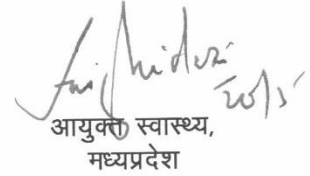 20/5
आयुक्त स्वास्थ्य,
मध्यप्रदेश